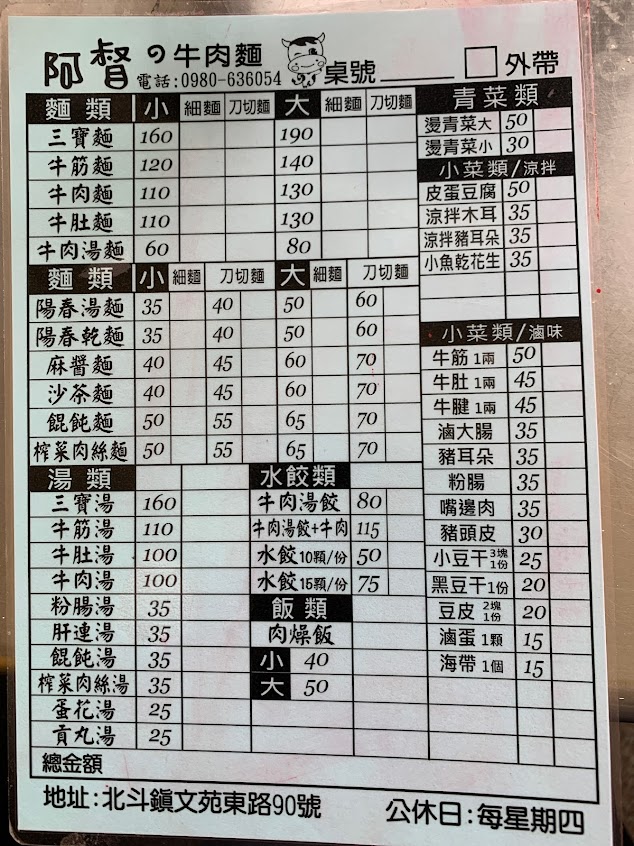 阿督の牛肉麵
電話:0980-636054
桌號 外帶
麵類 小 細麵 刀切麵 大 細麵 刀切麵
三寶麵 160 190
牛筋麵 120 140
牛肉麵 110 130
牛肚麵 110 130
牛肉湯麵 60 80
麵類 小 細麵 刀切麵 大 細麵 刀切麵
陽春湯麵 35 40 50 60
陽春乾麵 35 40 50 60
麻醬麵 40 45 60 70
沙茶麵 40 45 60 70
餛飩麵 50 55 65 70
榨菜肉絲麵 50 55 65 70
湯類
三寶湯 160
牛筋湯 110
牛肚湯 100
牛肉湯 100
粉腸湯 35
肝連湯 35
餛飩湯 35
榨菜肉絲湯 35
蛋花湯 25
貢丸湯 25
水餃類
牛肉湯餃 80
牛肉湯餃+牛肉 115
水餃10顆/份 50
水餃15顆/份 75
飯類
肉燥飯
小 40
大 50
青菜類
燙青菜大 50
燙青菜小 30
小菜類/涼拌
皮蛋豆腐 50
涼拌木耳 35
涼拌豬耳朵 35
小魚乾花生 35
小菜類/滷味
牛筋1兩 50
牛肚1兩 45
牛腱1兩 45
滷大腸 35
豬耳朵 35
粉腸 35
嘴邊肉 35
豬頭皮 30
小豆干3塊1份 25
黑豆干1份 20
豆皮2塊1份 20
滷蛋1顆 15
海帶1個 15
總金額
地址:北斗鎮文苑東路90號
公休日:每星期四